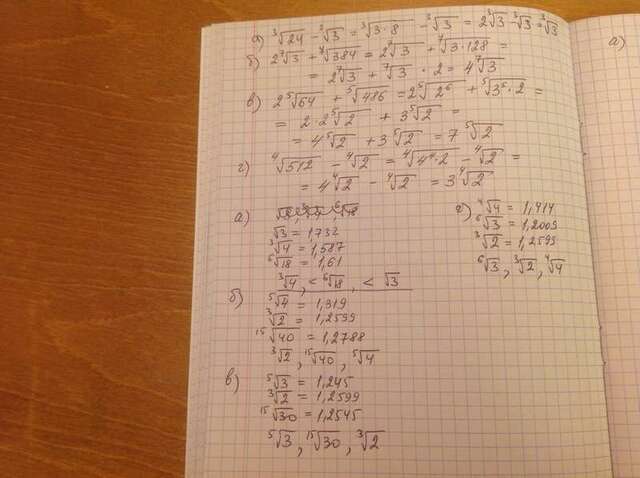 а) ∛24 - ∛3 = ∛3·8 - ∛3 = 2∛3 - ∛3 = ∛3
б) 2⁷√3 + ⁷√384 = 2⁷√3 + ⁷√3·128 =
= 2⁷√3 + ⁷√3 · 2 = 4⁷√3
в) 2⁵√64 + ⁵√486 = 2⁵√2⁶ + ⁵√3⁵·2 =
= 2·2⁵√2 + 3⁵√2 =
= 4⁵√2 + 3⁵√2 = 7⁵√2
г) ⁴√512 - ⁴√2 = ⁴√4⁴·2 - ⁴√2 =
= 4⁴√2 - ⁴√2 = 3⁴√2
а)
√3 = 1,732
∛4 = 1,587
⁶√18 = 1,61
∛4, < ⁶√18, < √3
б) ⁵√4 = 1,319
∛2 = 1,2599
¹⁵√40 = 1,2788
∛2, ¹⁵√40, ⁵√4
в) ⁵√3 = 1,245
∛2 = 1,2599
¹⁵√30 = 1,2545
⁵√3, ¹⁵√30, ∛2
г) ⁴√4 = 1,414
⁶√3 = 1,2009
∛2 = 1,2599
⁶√3, ∛2, ⁴√4
а)